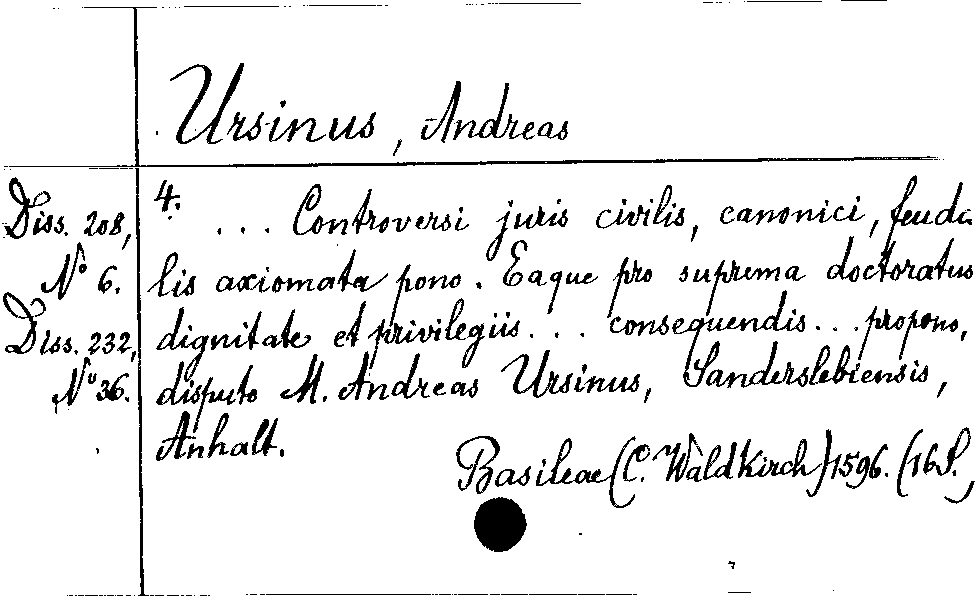 Ursinus, Andreas
Diss. 208,
N° 6.
Diss. 232,
N° 36.
4.
... Controversi juris civilis, canonici, feuda
lis axiomata pono. Eaque pro suprema doctoratus
dignitate et privilegiis... consequendis... propono,
disputo M. Andreas Ursinus, Sanderslebiensis,
Anhalt.
Basileae (C. Waldkirch) 1596. (16 S.)